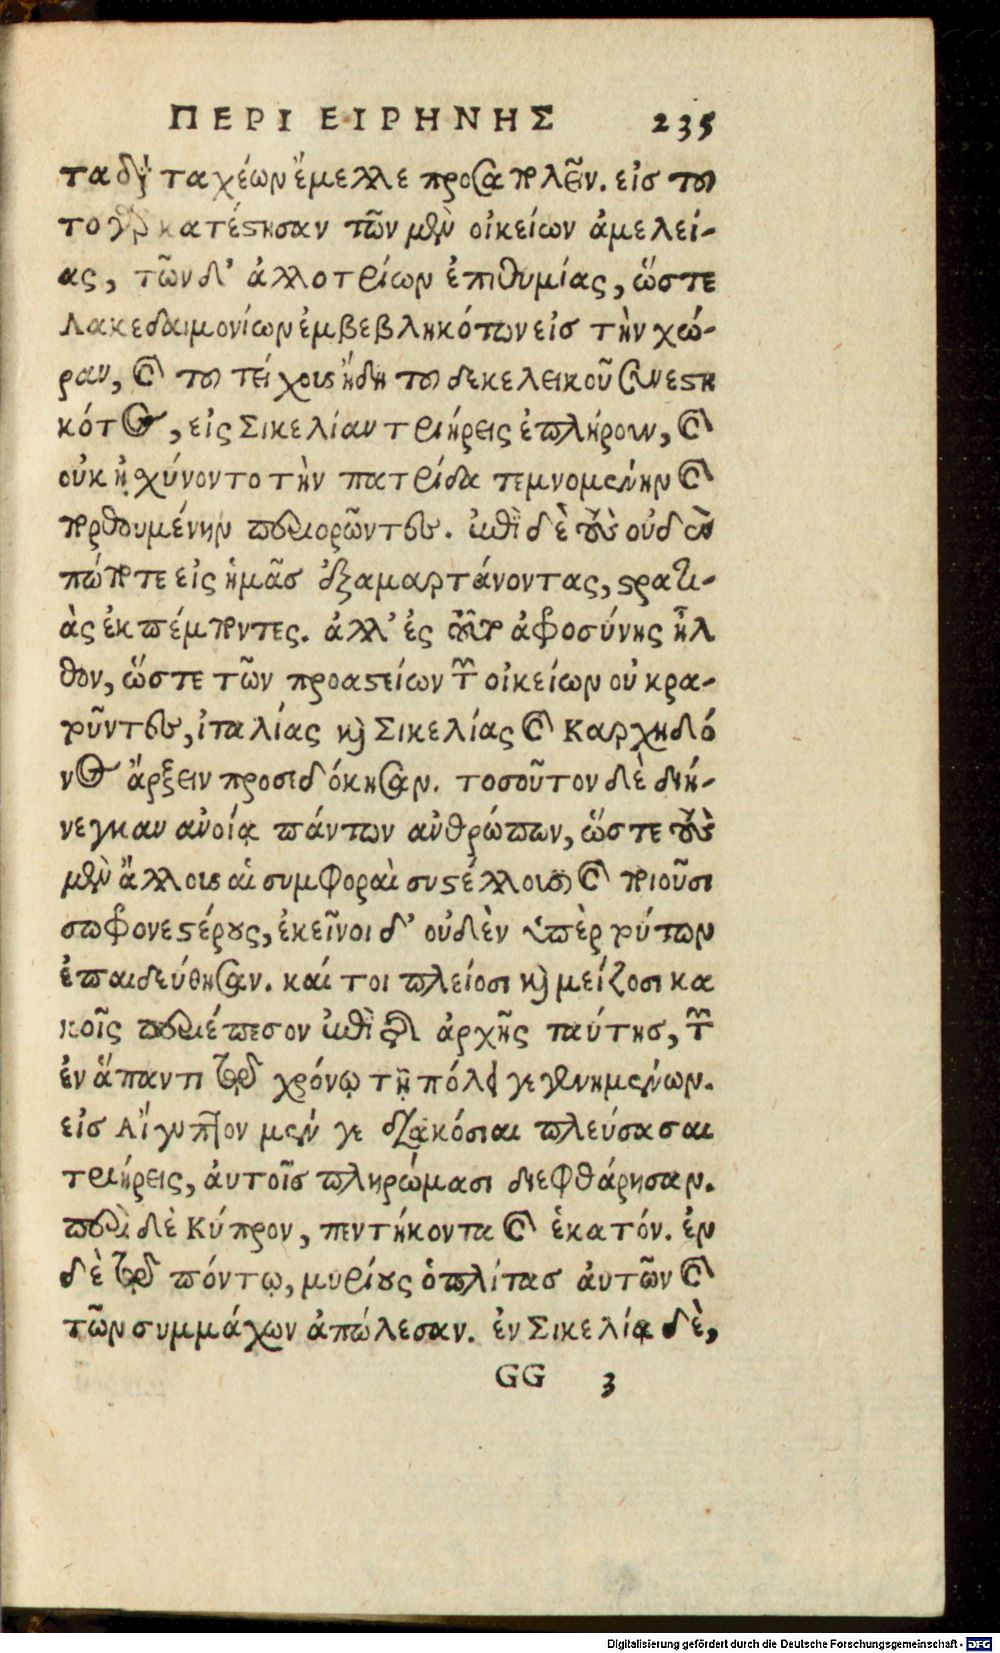 ΠΕΡΙ ΕΙΡΗΝΗΣ 235
τα διὰ ταχέων ἔμελλε προσαπολεῖν. εἰς τοῦ
το γὰρ κατέστησαν τῶν μὲν οἰκείων ἀμελεί-
ας, τῶν δ' ἀλλοτρίων ἐπιθυμίας, ὥστε
Λακεδαιμονίων ἐμβεβληκότων εἰς τὴν χώ-
ραν, καὶ τοῦ τείχους ἤδη τοῦ δεκελεικοῦ συνεστη
κότος, εἰς Σικελίαν τριήρεις ἐπλήρουν, καὶ
οὐκ ᾐχύνοντο τὴν πατρίδα τεμνομένην καὶ
πορθουμένην περιορῶντες. ἐπὶ δὲ τοὺς οὐδὲν
πώποτε εἰς ἡμᾶς ἐξαμαρτάνοντας, στρατι-
ὰς ἐκπέμποντες. ἀλλ' ἐς τοῦτο ἀφροσύνης ἦλ
θον, ὥστε τῶν προαστείων τῶν οἰκείων οὐ κρα-
τοῦντες, ἰταλίας καὶ Σικελίας καὶ Καρχηδό
νος ἄρξειν προσεδόκησαν. τοσοῦτον δὲ διή-
νεγκαν ἀνοίᾳ πάντων ἀνθρώπων, ὥστε τοὺς
μὲν ἄλλους αἱ συμφοραὶ συστέλλουσι καὶ ποιοῦσι
σωφρονεστέρους, ἐκεῖνοι δ' οὐδὲν ὑπὲρ τούτων
ἐπαιδεύθησαν. καί τοι πλείοσι καὶ μείζοσι κα
κοῖς περιέπεσον ἐπὶ τῆς ἀρχῆς ταύτης, τῶν
ἐν ἅπαντι τῷ χρόνῳ τῇ πόλει γεγενημένων.
εἰς Αἴγυπτον μέν γε διακόσιαι πλεύσασαι
τριήρεις, αὐτοῖς πληρώμασι διεφθάρησαν.
περὶ δὲ Κύπρον, πεντήκοντα καὶ ἑκατόν. ἐν
δὲ τῷ πόντῳ, μυρίους ὁπλίτας αὐτῶν καὶ
τῶν συμμάχων ἀπώλεσαν. ἐν Σικελίᾳ δὲ,
GG 3
Digitalisierung gefördert durch die Deutsche Forschungsgemeinschaft - DFG